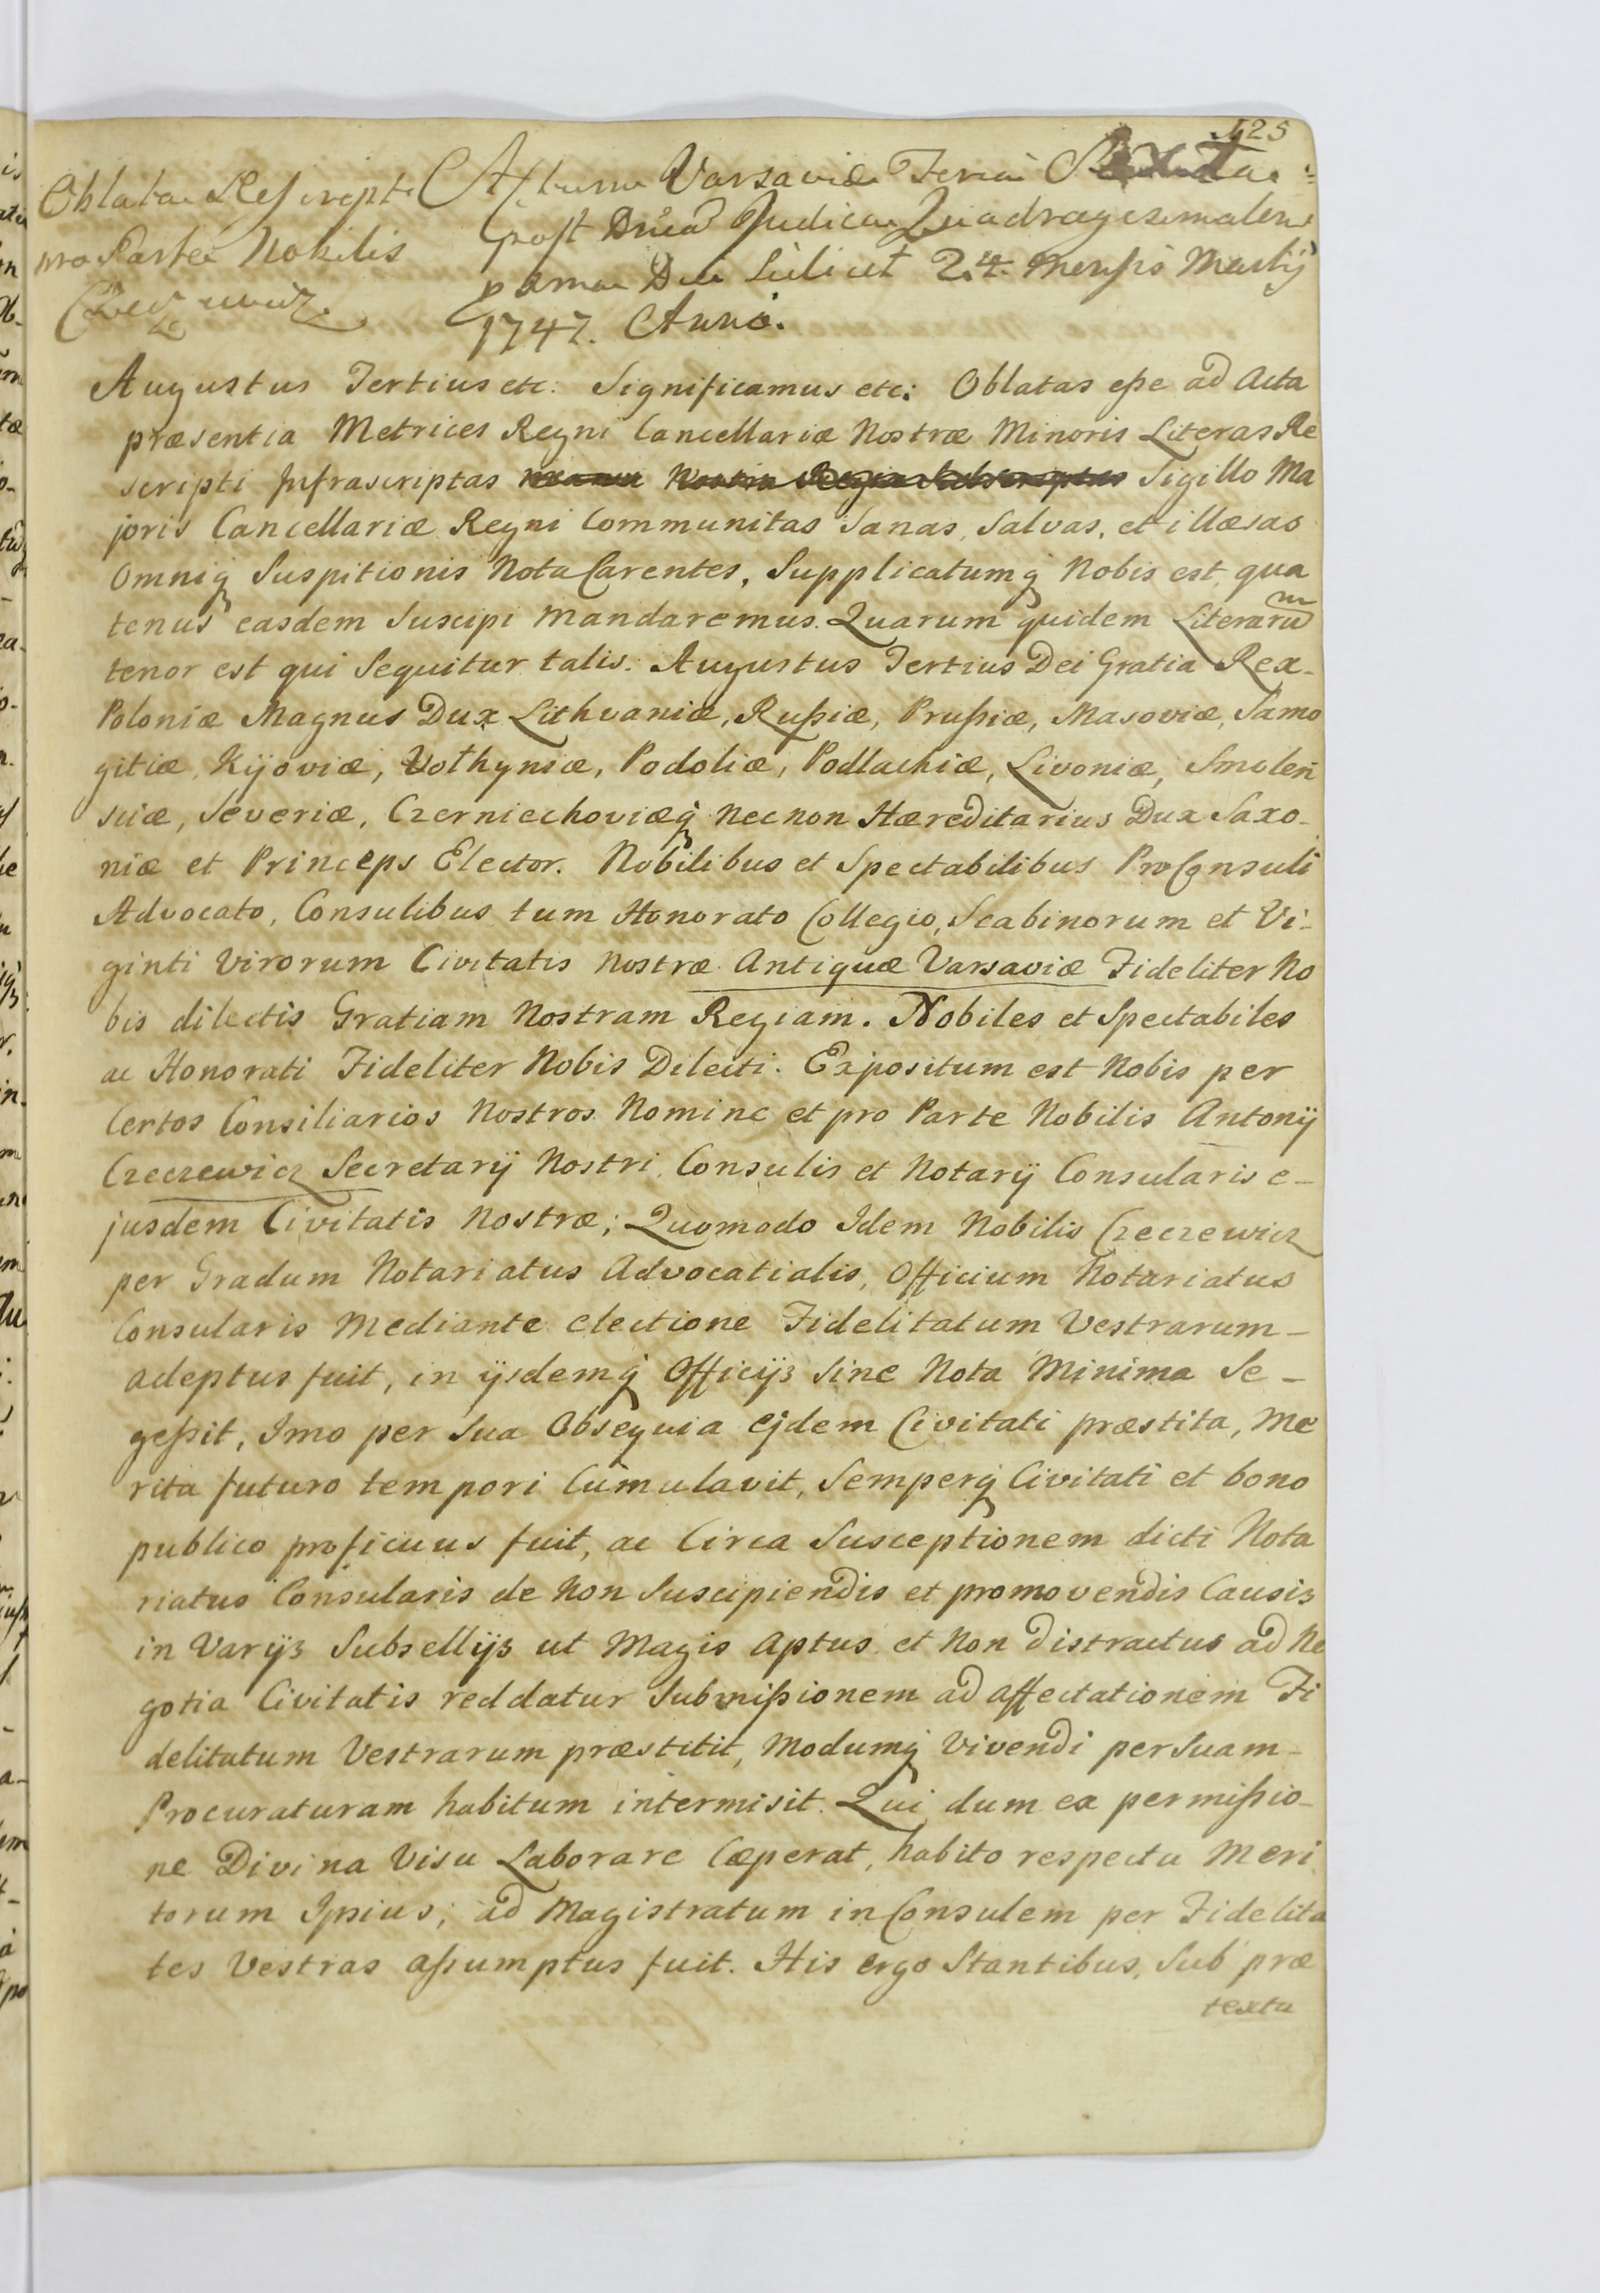 125
Oblata Rescripti
pro Parte Nobilis
Czeczewicz.
Actum Varsaviæ Feria Sexta
post Dnicã Judica Quadragesimalem
proxima Die Scilicet 24. Mensis Martij
1747. Anno.
Augustus Tertius etc: Significamus etc: Oblatas eße ad Acta
præsentia Metrices Regni Cancellariæ Nostræ Minoris Literas Re
scripti Infrascriptas manu Nostra Regia Subscriptas Sigillo Ma
joris Cancellariæ Regni Communitas Sanas, Salvas, et illæsas
Omniq Suspitionis Nota Carentes, Supplicatumq Nobis est, qua
tenus easdem Suscipi Mandaremus. Quarum quidem Literarum
tenor est qui Sequitur talis. Augustus Tertius Dei Gratia Rex-
Poloniæ Magnus Dux Lithvaniæ, Rußiæ, Prußiæ, Masoviæ, Samo
gitiæ, Kijoviæ, Volhyniæ, Podoliæ, Podlachiæ, Livoniæ, Smolen̄
sciæ, Severiæ, Czerniechoviæq necnon Hæreditarius Dux Saxo-
niæ et Princeps Elector. Nobilibus et Spectabilibus ProConsuli
Advocato, Consulibus tum Honorato Collegio, Scabinorum et Vi-
ginti Virorum Civitatis Nostræ Antiquæ Varsaviæ Fideliter No
bis dilectis Gratiam Nostram Regiam. Nobiles et Spectabiles
ac Honorati Fideliter Nobis Dilecti. Expositum est Nobis per
Certos Consiliarios Nostros Nomine et pro Parte Nobilis Antonij
Czeczewicz Secretarij Nostri, Consulis et Notarij Consularis e-
jusdem Civitatis Nostræ; Quomodo Idem Nobilis Czeczewicz
per Gradum Notariatus Advocatialis, Officium Notariatus
Consularis Mediante electione Fidelitatum Vestrarum-
adeptus fuit, in ijsdemq Officijs Sine Nota Minima Se-
geßit, Imo per Sua Obsequia ejdem Civitati præstita, Me
rita futuro tempori Cumulavit, Semperq Civitati et bono
publico proficuus fuit, ac Circa Susceptionem dicti Nota
riatus Consularis de Non Suscipiendis et promovendis Causis
in Varijs Subsellijs ut Magis Aptus et Non distractus ad Ne
gotia Civitatis reddatur Submißionem ad affectationem Fi
delitatum Vestrarum præstitit, Modumq Vivendi per Suam-
Procuraturam habitum intermisit. Qui dum ex permißio-
ne Divina Visu Laborare Cæperat, habito respectu Meri
torum Ipsius, ad Magistratum in Consulem per Fidelita
tes Vestras aßumptus fuit. His ergo Stantibus, Sub præ
textu